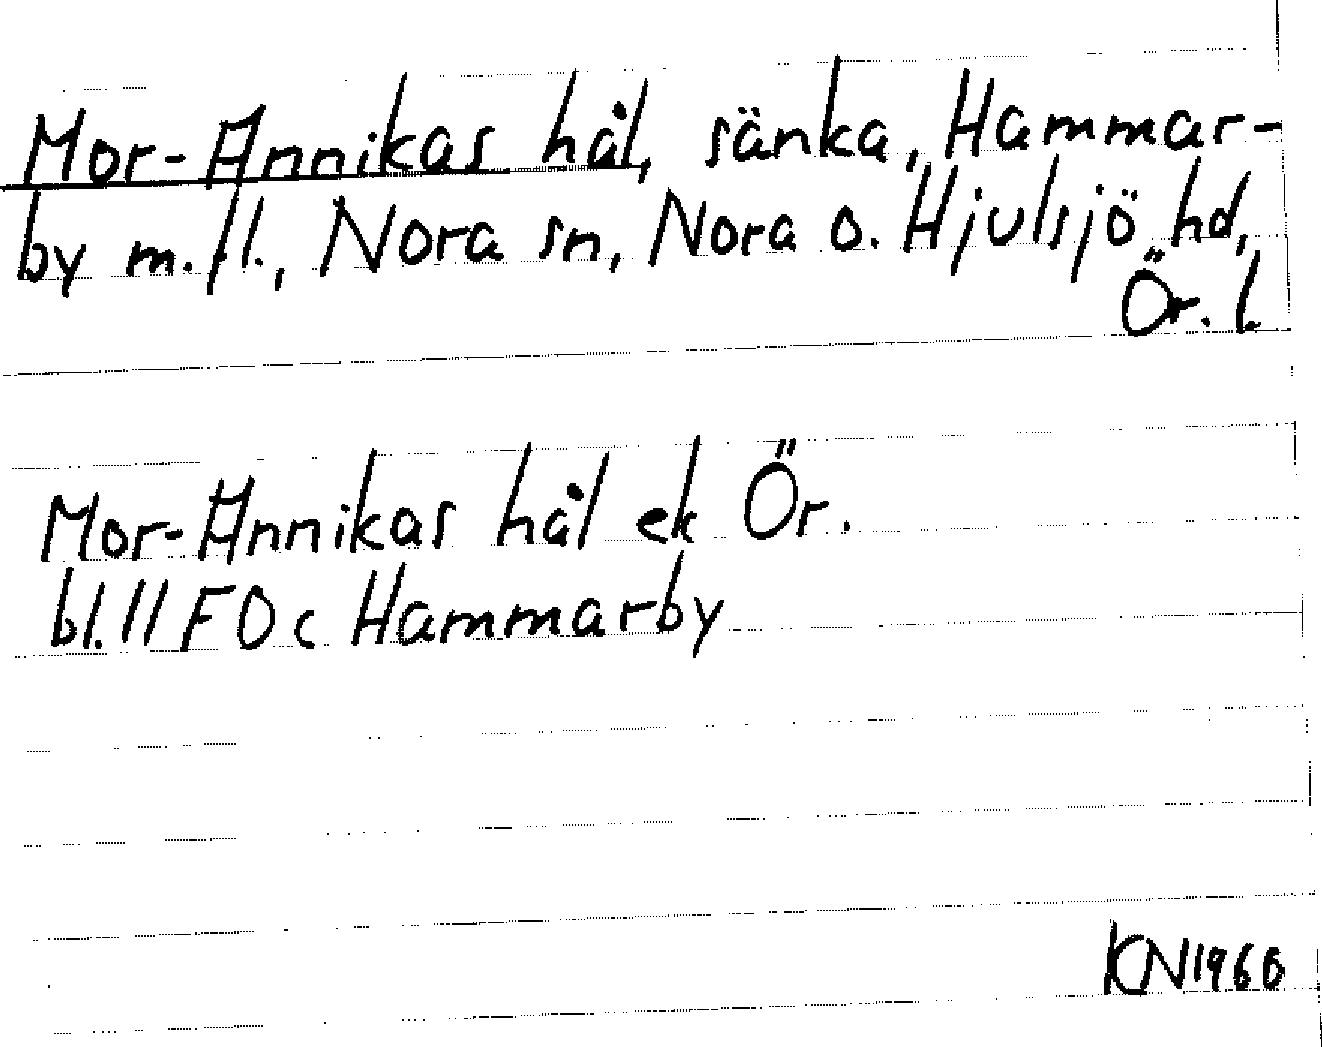 Mor-Annikas hål, sänka, Hammar-
by m.fl., Nora sn, Nora o. Hjulsjö hd,
Ör. l.
Mor-Annikas hål ek Ör.
bl. 11 F 0 c Hammarby
KN 1960